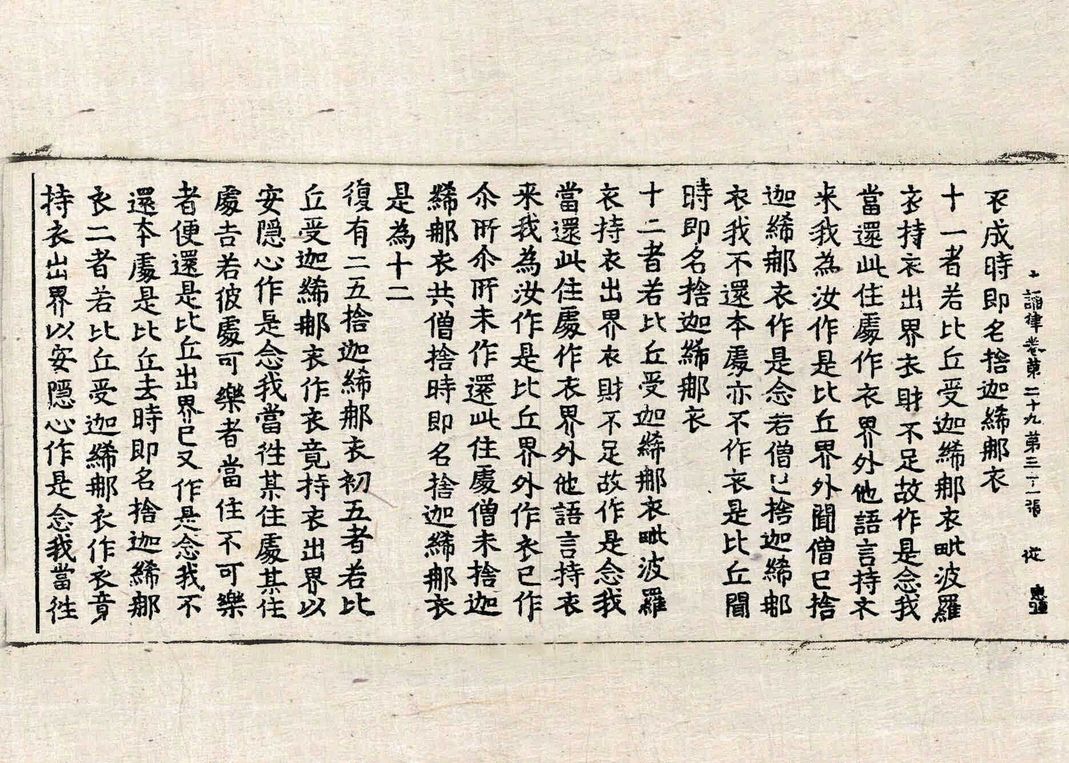 十誦律卷第二十九第三十一張 從
衣成時即名捨迦絺那衣
十一者若比丘受迦絺那衣毗波羅
衣持衣出界衣財不足故作是念我
當還此住處作衣界外他語言持衣
来我為汝作是比丘界外聞僧已捨
迦絺那衣作是念若僧已捨迦絺那
衣我不還本處亦不作衣是比丘聞
時即名捨迦絺那衣
十二者若比丘受迦絺那衣毗波羅
衣持衣出界衣財不足故作是念我
當還此住處作衣界外他語言持衣
来我為汝作是比丘界外作衣已作
尒所尒所未作還此住處僧未捨迦
絺那衣共僧捨時即名捨迦絺那衣
是為十二
復有二五捨迦絺那衣初五者若比
丘受迦絺那衣作衣竟持衣出界以
安隱心作是念我當往某住處某住
處吉若彼處可樂者當住不可樂
者便還是比丘出界已又作是念我不
還本處是比丘去時即名捨迦絺那
衣二者若比丘受迦絺那衣作衣竟
持衣出界以安隱心作是念我當往